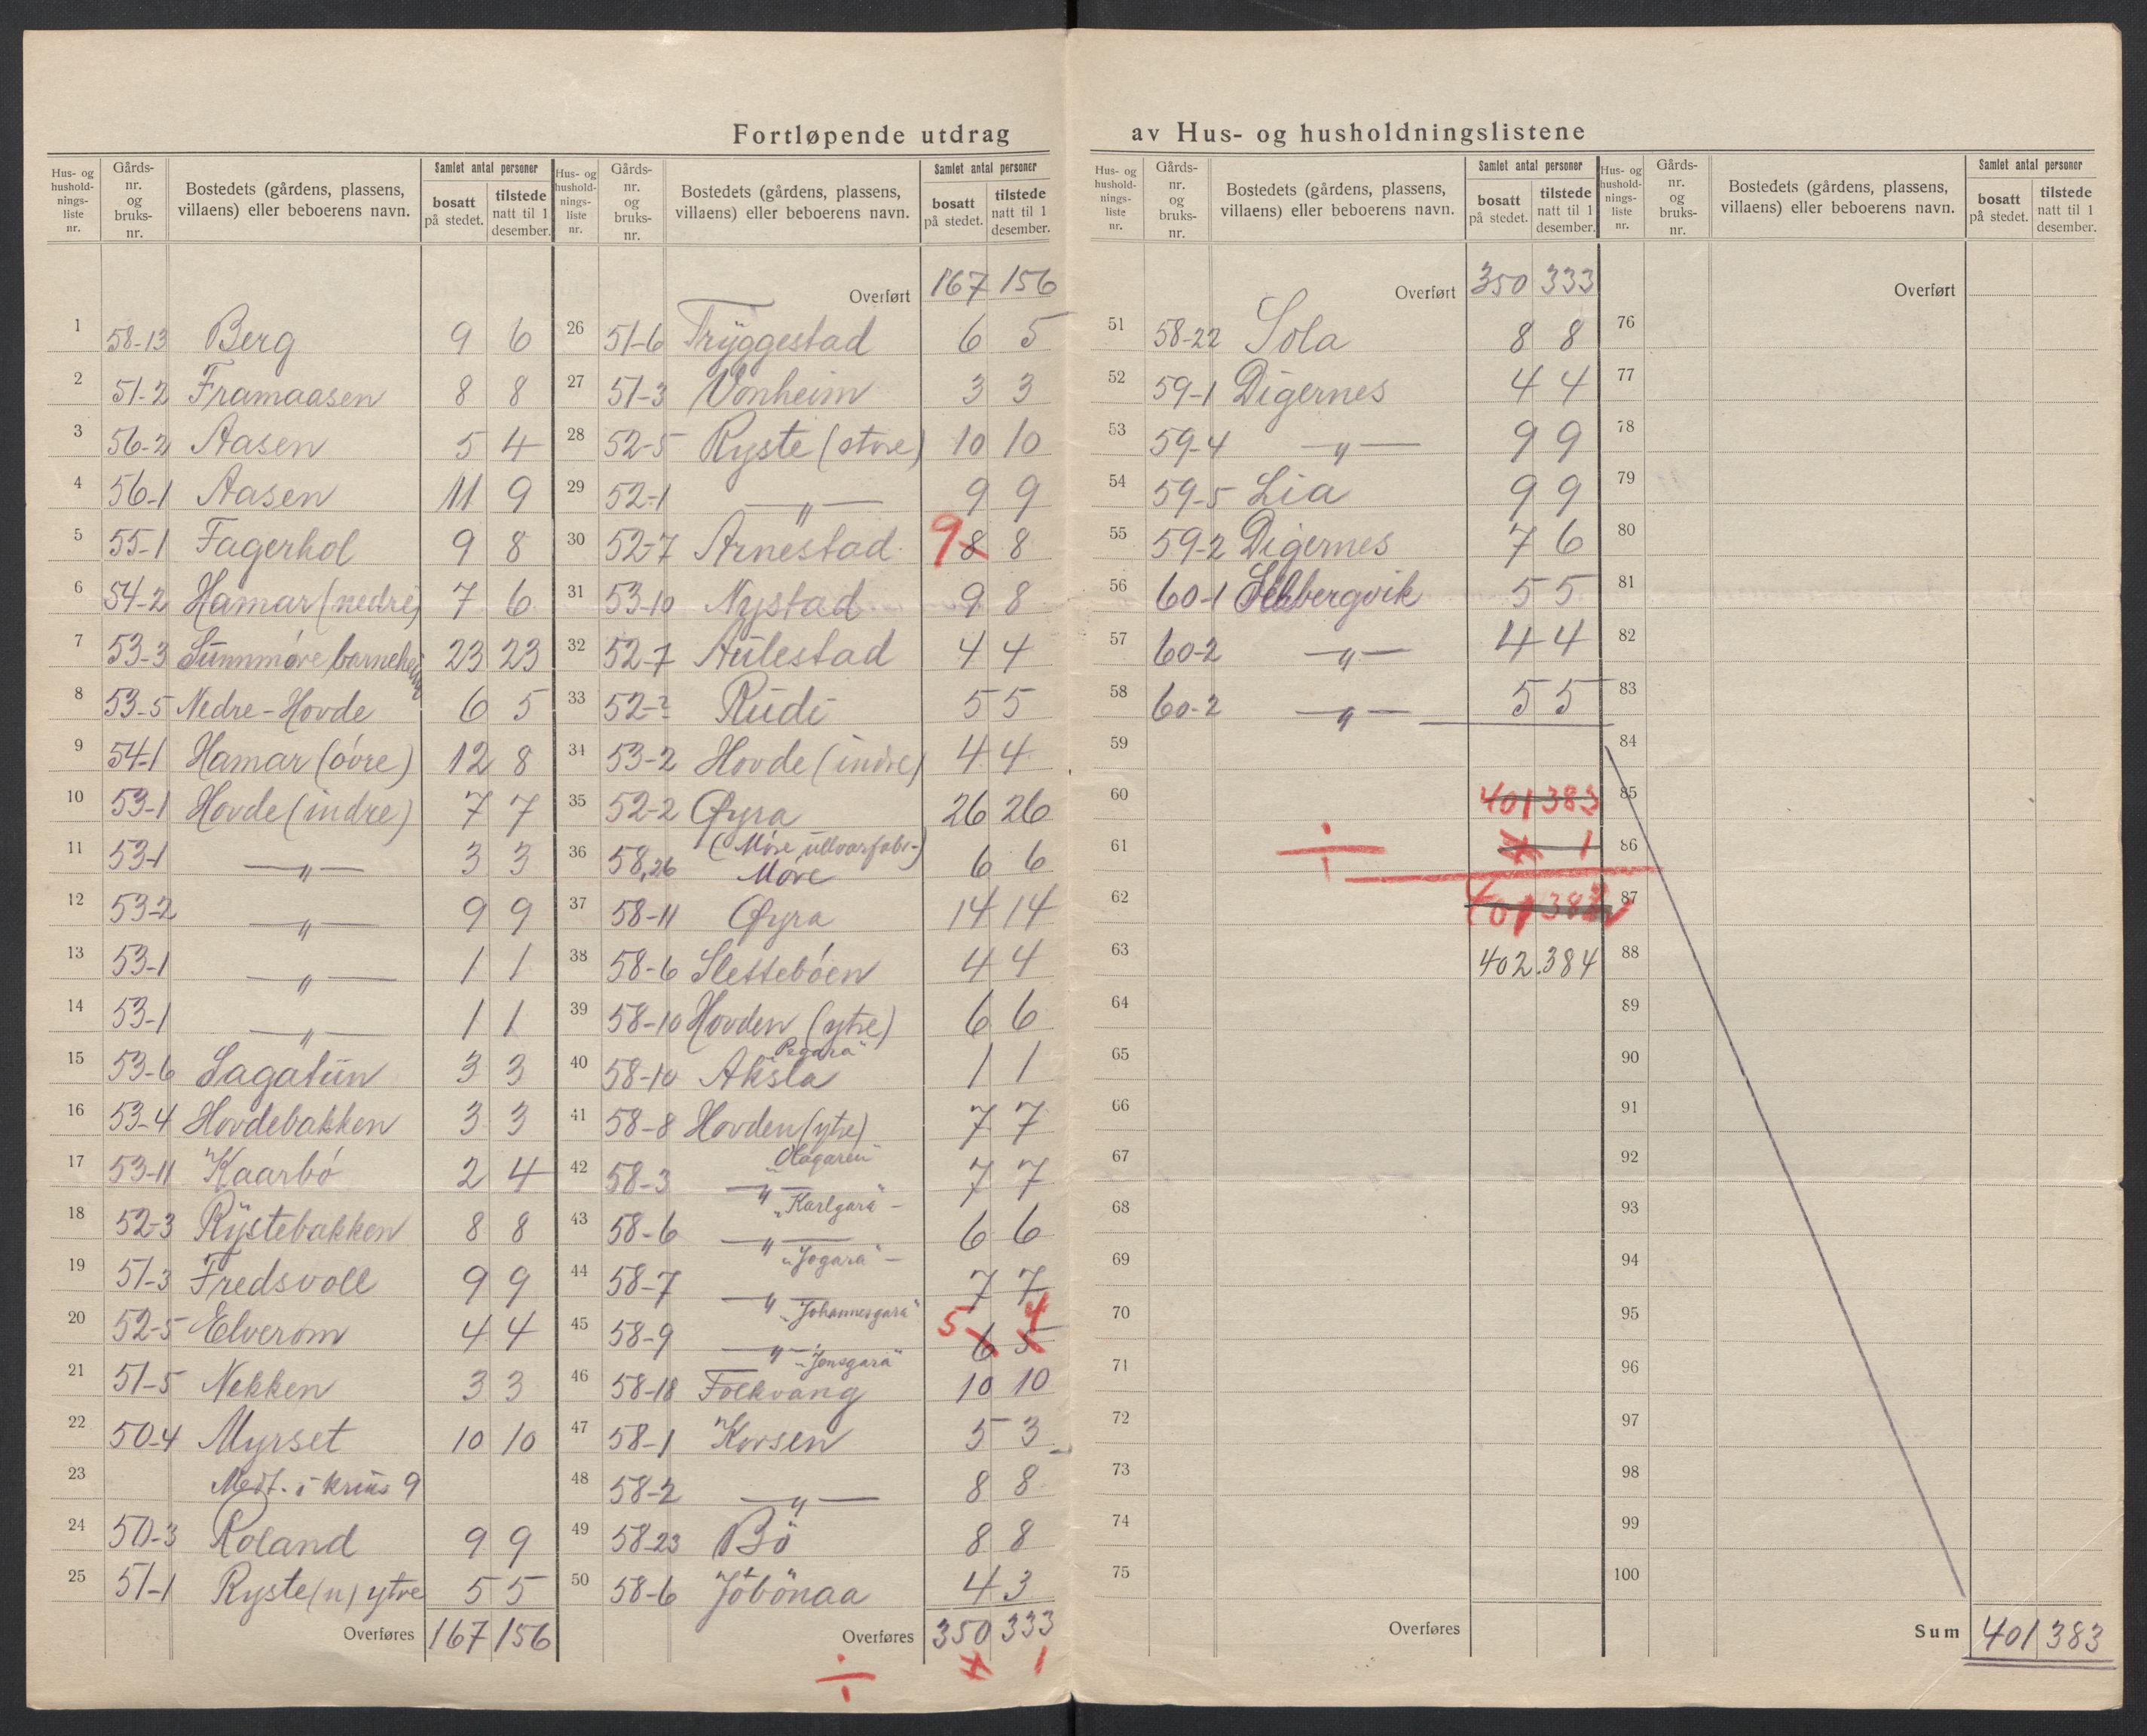 Fortløpende utdrag av Hus- og husholdningslistene
Hus- og hushold-nings-liste nr. Gårds-nr. og bruks-nr. Bostedets (gårdens, plassens, villaens) eller beboerens navn. Samlet antal personer bosatt på stedet. tilstede natt til 1 desember.
1 58-13 Berg 9 6
2 51-2 Framaasen 8 8
3 56-2 Aasen 5 4
4 56-1 Aasen 11 9
5 55-1 Fagerhol 9 8
6 54-2 Hamar (nedre) 7 6
7 53-3 Sunnmøre barneheim 23 23
8 53-5 Nedre-Hovde 6 5
9 54-1 Hamar (óvre) 12 8
10 53-1 Hovde (indre) 7 7
11 53-1 —"— 3 3
12 53-2 —"— 9 9
13 53-1 —"— 1 1
14 53-1 —"— 1 1
15 53-6 Sagatun 3 3
16 53-4 Hovdebakken 3 3
17 53-11 Kaarbó 2 4
18 52-3 Rystebakken 8 8
19 51-3 Fredsvoll 9 9
20 52-5 Elverom 4 4
21 51-5 Nekken 3 3
22 50-4 Myrset 10 10
23 Medt. i krüs 9
24 50-3 Roland 9 9
25 51-1 Ryste(n) ytre 5 5
Overføres 167 156
Hus- og hushold-nings-liste nr. Gårds-nr. og bruks-nr. Bostedets (gårdens, plassens, villaens) eller beboerens navn. Samlet antal personer bosatt på stedet. tilstede natt til 1 desember.
Overført 167 156
26 51-6 Tryggestad 6 5
27 51-3 Vonheim 3 3
28 52-5 Ryste (store) 10 10
29 52-1 —"— 9 9
30 52-7 Arnestad 9 8 8
31 53-10 Nystad 9 8
32 52-7 Aulestad 4 4
33 52-? Rudi 5 5
34 53-2 Hovde (indre) 4 4
35 52-2 Øyra 26 26
(Móre ullvarfabr-)
36 58,26 Móre 6 6
37 58-11 Øyra 14 14
38 58-6 Slettebóen 4 4
39 58-10 Hovden (ytre) 6 6
"Pegara"
40 58-10 Aksla 1 1
41 58-8 Hovden (ytre) 7 7
"Olagaren"
42 58-3 —"— 7 7
"Karlgara"
43 58-6 —"— 6 6
"Jogara"
44 58-7 —"— 7 7
"Johannesgara"
45 58-9 —"— 5 6 4 5
"Jensgara"
46 58-18 Folkvang 10 10
47 58-1 Korsen 5 3
48 58-2 —"— 8 8
49 58-23 Bö 8 8
50 58-6 Jóbónaa 4 3
Overføres 350 333
÷ 1 1
Hus- og hushold-nings-liste nr. Gårds-nr. og bruks-nr. Bostedets (gårdens, plassens, villaens) eller beboerens navn. Samlet antal personer bosatt på stedet. tilstede natt til 1 desember.
Overført 350 333
51 58-22 Sola 8 8
52 59-1 Digernes 4 4
53 59-4 —"— 9 9
54 59-5 Lia 9 9
55 59-2 Digernes 7 6
56 60-1 Sekbergvik 5 5
57 60-2 —"— 4 4
58 60-2 —"— 5 5
59
60 401 383
61 ÷ 1
62 401
63 402 384
64
65
66
67
68
69
70
71
72
73
74
75
Overføres
Hus- og hushold-nings-liste nr. Gårds-nr. og bruks-nr. Bostedets (gårdens, plassens, villaens) eller beboerens navn. Samlet antal personer bosatt på stedet. tilstede natt til 1 desember.
Overført
76
77
78
79
80
81
82
83
84
85
86
87
88
89
90
91
92
93
94
95
96
97
98
99
100
Sum 401 383